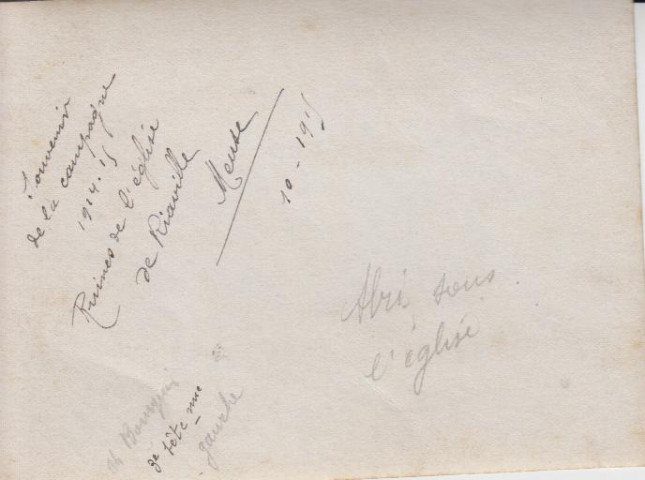 Souvenir
de la campagne
1914-15
Ruines de l'église
de Riaville
Meuse
10-1915
Abri sous
l'église
3e tête nue
gauche